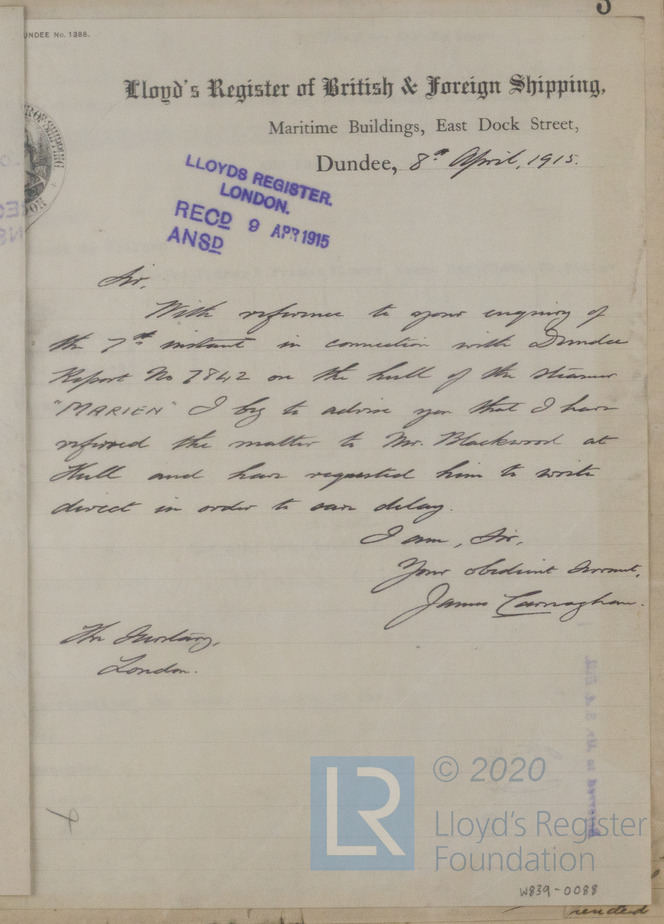 5
UNDEE No. 1288.
Lloyd's Register of British & Foreign Shipping,
Maritime Buildings, East Dock Street,
Dundee, 8th April, 1915.
LLOYDS REGISTER.
LONDON.
RECD 9 APR 1915
ANSD
Sir,
With reference to your enquiry of
the 7th instant in connection with Dundee
Report No 7842 on the hull of the steamer
"MARIEN" I beg to advise you that I have
referred the matter to Mr. Blackwood at
Hull and have requested him to write
direct in order to save delay.
I am, Sir,
Your obedient servant,
James Carnaghan.
The Secretary,
London.
LR
© 2020
Lloyd's Register
Foundation
W839-0088